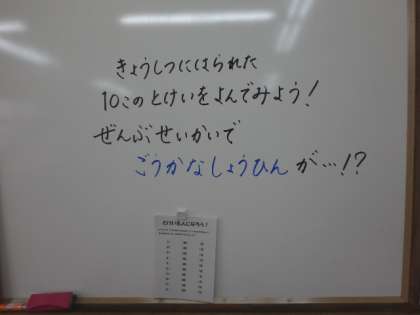 きょうしつにはられた
10このとけいをよんでみよう!
ぜんぶせいかいで
ごうかなしょうひんが…!?